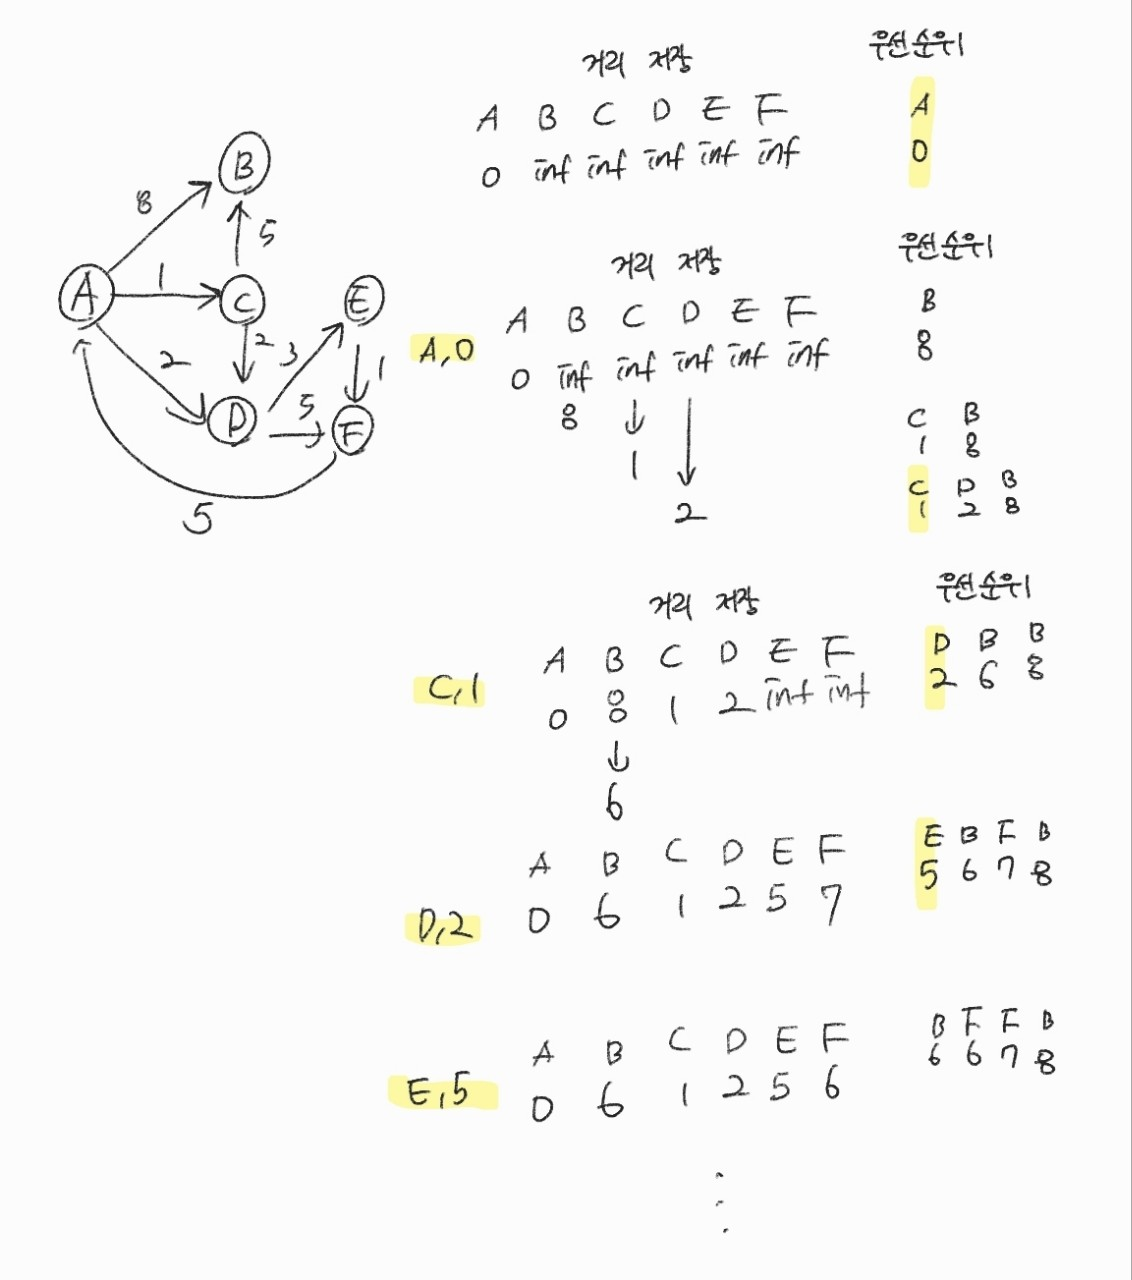 거리 저장
우선순위
A B C D E F
A
0 inf inf inf inf inf
0
B
8
5
A
1
C
E
2
2
3
1
D
5
F
5
거리 저장
우선순위
A,0
A B C D E F
B
0 inf inf inf inf inf
8
8
1
2
C B
1 8
C D B
1 2 8
거리 저장
우선순위
C,1
A B C D E F
D B B
0 8 1 2 inf inf
2 6 8
6
A B C D E F
E B F B
D,2
0 6 1 2 5 7
5 6 7 8
A B C D E F
B F F B
E,5
0 6 1 2 5 6
6 6 7 8